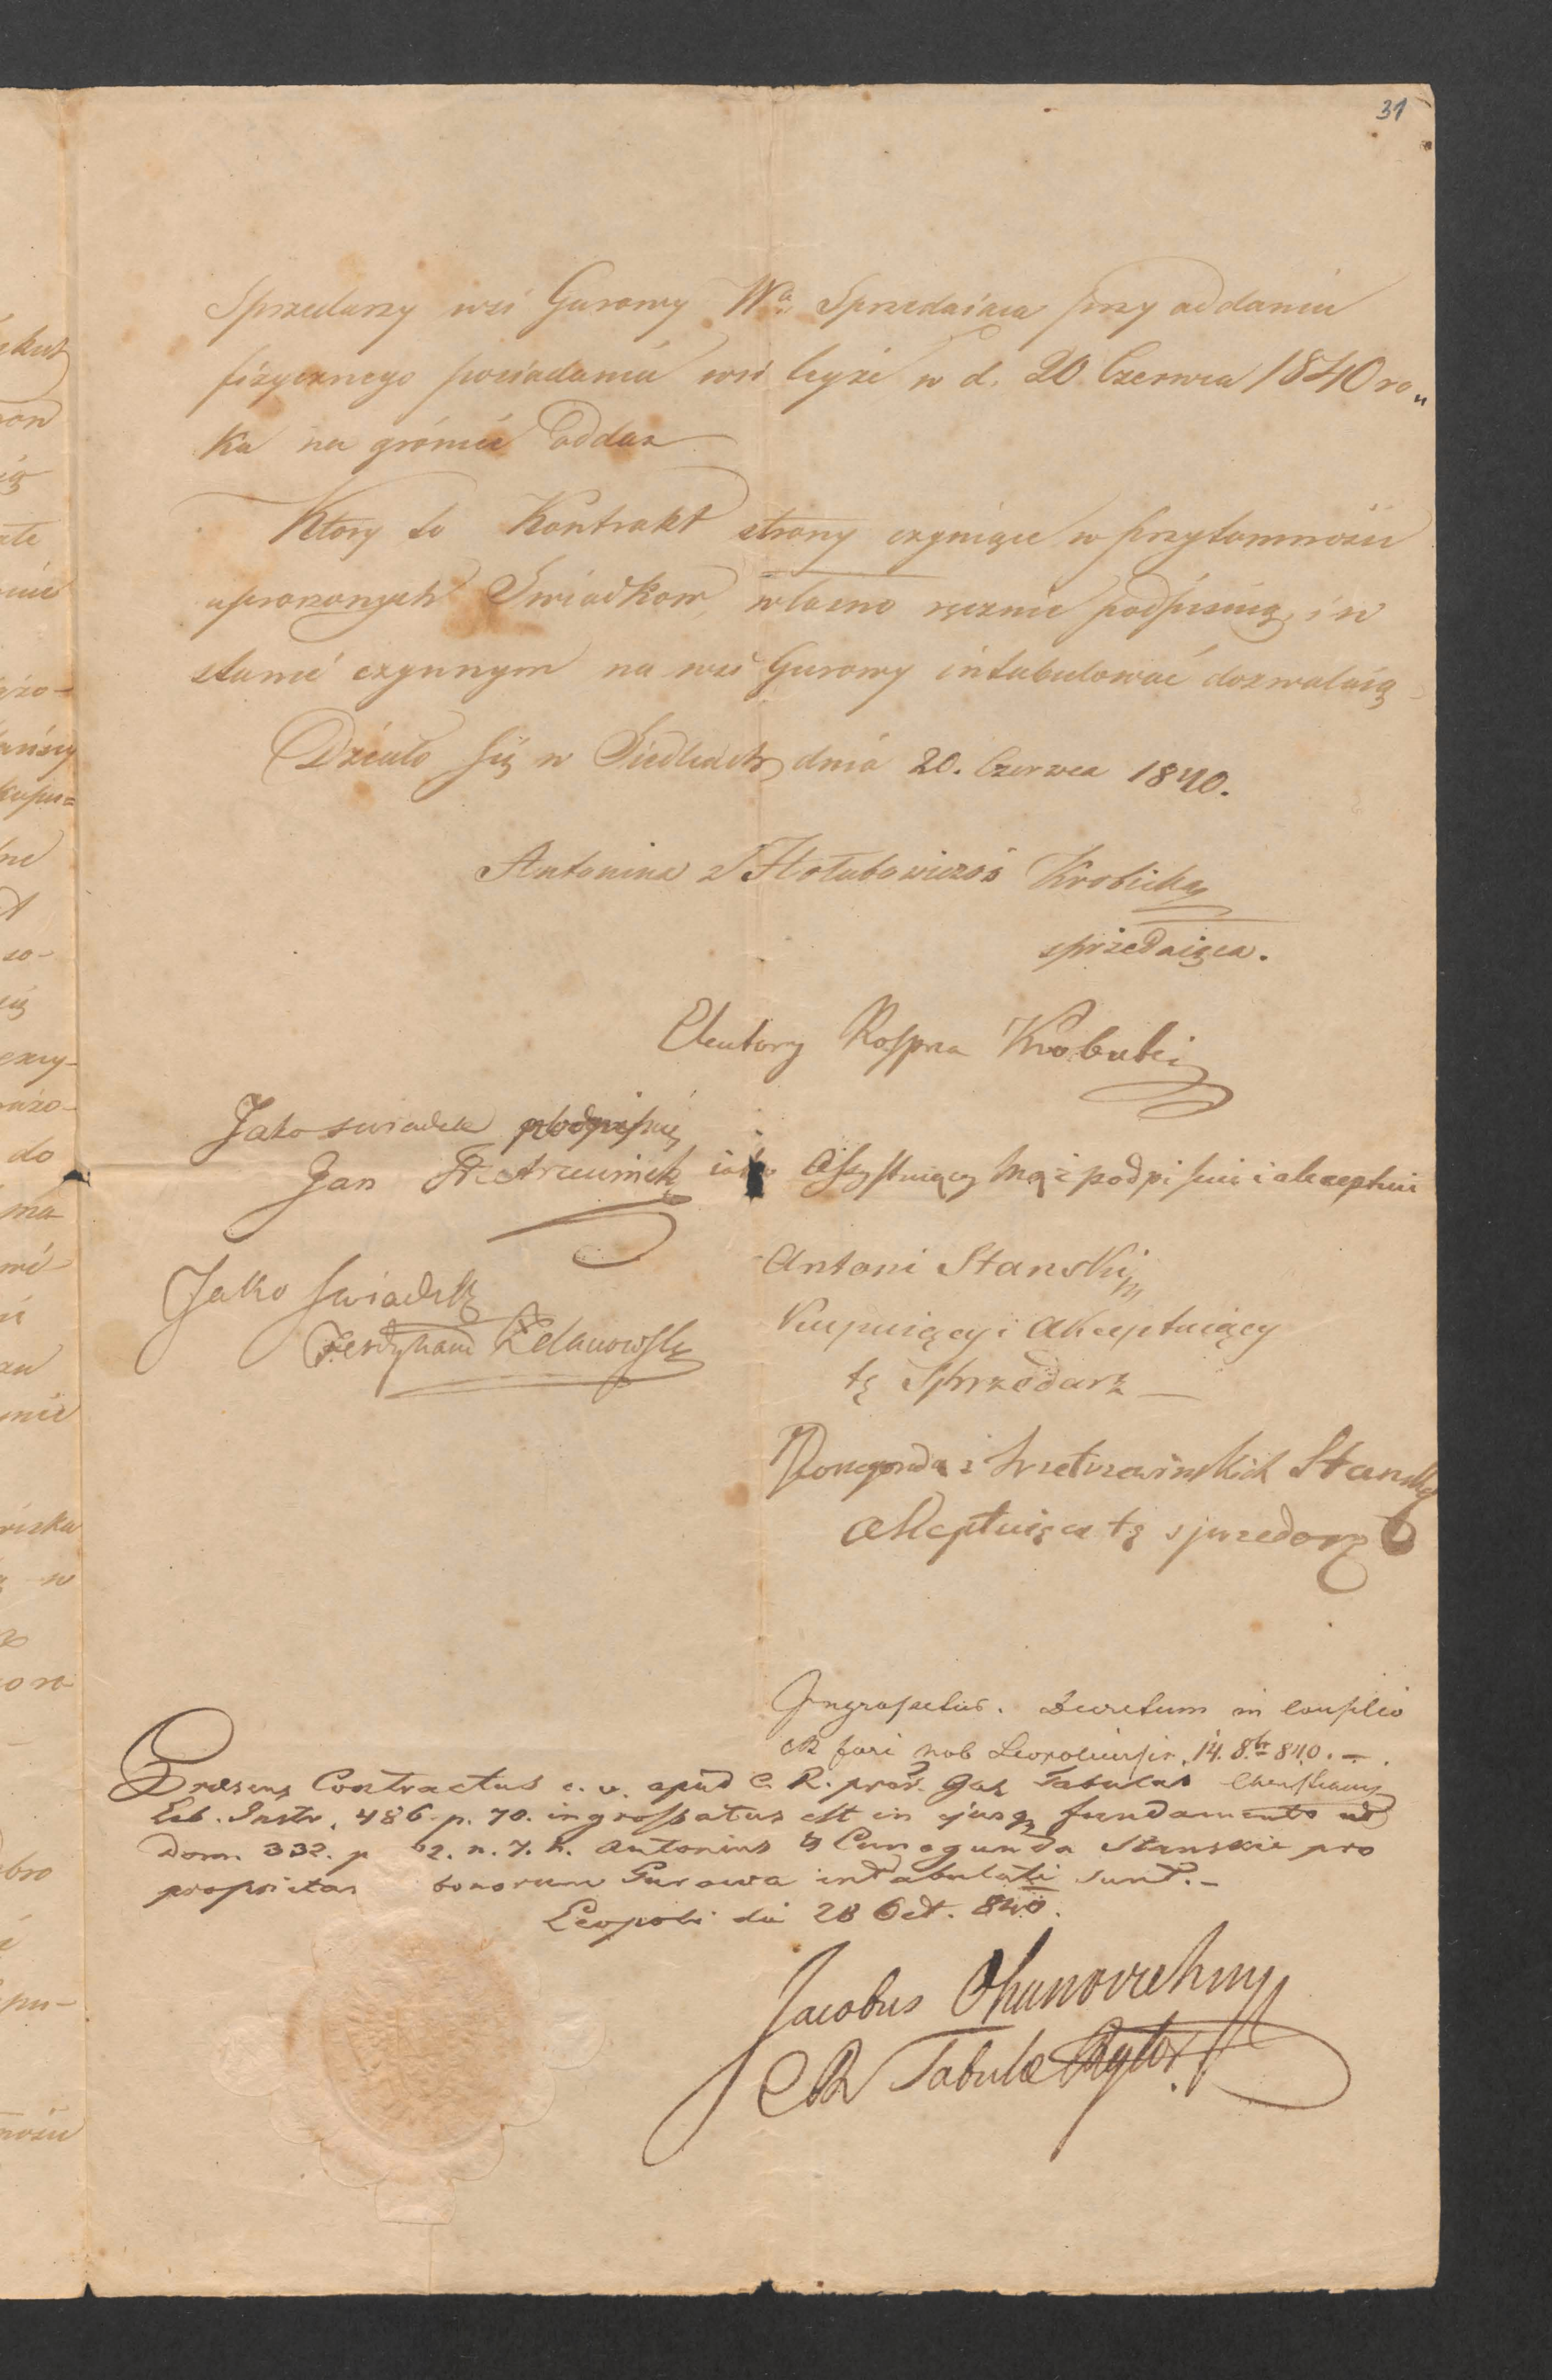 31
Sprzedarzy wsi Gurowy Wa. Sprzedaiąca przy oddaniu
fizycznego posiadania wsi teyże w d. 20 Czerwca 1840 ro„
ka na gróncie odda
Ktory to Kontrakt strony czyniące w przytomności
uproszonych Swiadkow, własno ręcznie podpisuią, i w
stanie czynnym na wsi Gurowy intabulować dozwalaią
Działo się w Siedlcach dnia 20. Czerwca 1840.
Antonina z Hołubowiczów Krobicka
sprzedaiąca.
Jako swiadek podpisuię
Jan
iako Assystuiący mąż podpisuie i akceptuie
Jako swiadek
Ferdynand
Antoni Stanski
Kupuiący i Akceptuiący
tę Sprzedarz
Stanska
akceptuiąca tę sprzedarz
Ingrossetur. Decretum in Consilio
CR fori nob Leopoliensis. 14. 8br 840.
Praesens Contractus c. v. apud C. R. prov. Gal Tabulam
Lib. Instr. 486. p. 70. ingrossatus est in ejusq fundamento ad
Dom. 332. p 2. n. 7. h. Antonius & Cunegunda Stanskie pro
proprietar bonorum Gurowa intabulati sunt.
Leopoli die 28 Oct. 840.
Jacobus
CR Tabulae